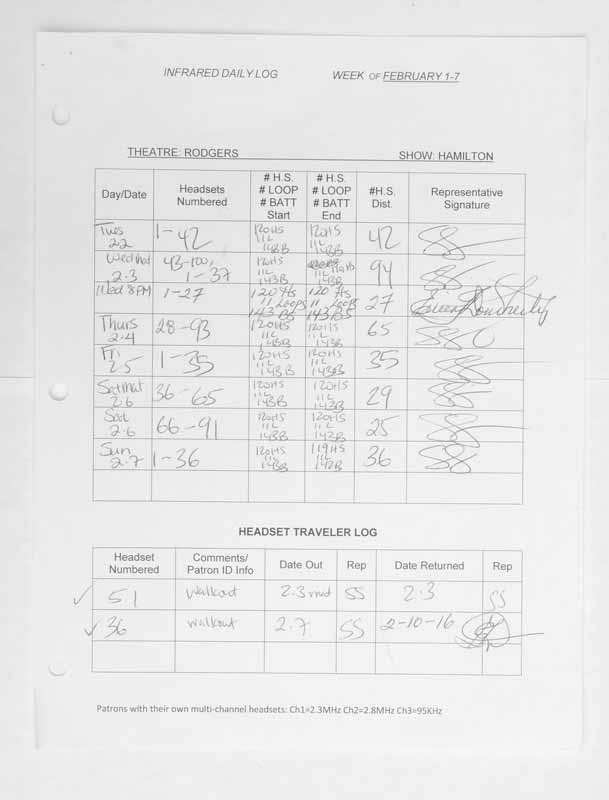 INFRARED DAILY LOG WEEK OF FEBRUARY 1-7
THEATRE: RODGERS SHOW: HAMILTON
Day/Date Headsets Numbered # H.S. # LOOP # BATT Start # H.S. # LOOP # BATT End #H.S. Dist. Representative Signature
Tues 2.2 1-42 120HS 11L 143B 120HS 11L 143B 42 SS
Wed mat 2.3 43-100, 1-37 120HS 11L 143B 119HS 11L 143B 94 SS
Wed 8PM 1-27 120 HS 11 Loops 143 BS 120 HS 11 Loops 143 BS 27
Thurs 2.4 28-93 120HS 11L 143B 120HS 11L 143B 65 SS
Fri 2.5 1-35 120HS 11L 143B 120HS 11L 143B 35 SS
Sat mat 2.6 36-65 120HS 11L 143B 120HS 11L 143B 29 SS
Sat 2.6 66-91 120HS 11L 143B 120HS 11L 143B 25 SS
Sun 2.7 1-36 120HS 11L 143B 119HS 11L 142B 36 SS
HEADSET TRAVELER LOG
Headset Numbered Comments/ Patron ID Info Date Out Rep Date Returned Rep
51 walkout 2.3 mat SS 2.3 SS
36 walkout 2.7 SS 2-10-16
Patrons with their own multi-channel headsets: Ch1=2.3MHz Ch2=2.8MHz Ch3=95KHz